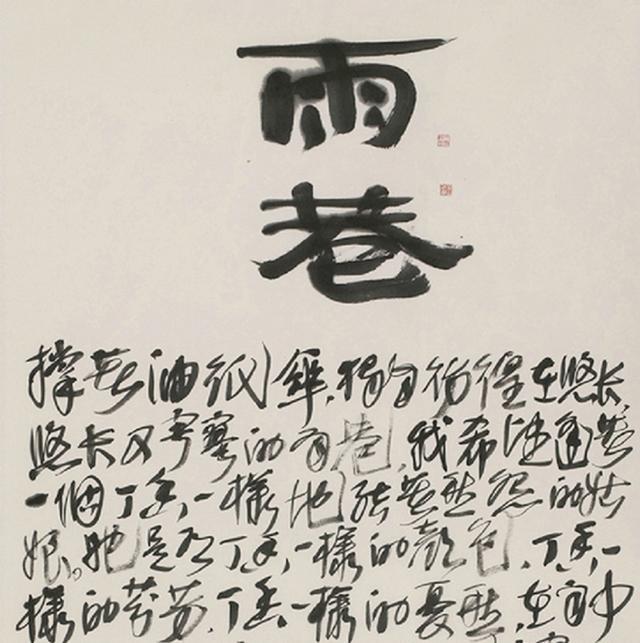 雨
巷
撐著油紙傘,獨自彷徨在悠长
悠长又寂寥的雨巷,我希望逢著
一個丁香一樣地結著愁怨的姑
娘。她是有丁香一樣的顏色,丁香一
樣的芬芳,丁香一樣的憂愁,在雨中